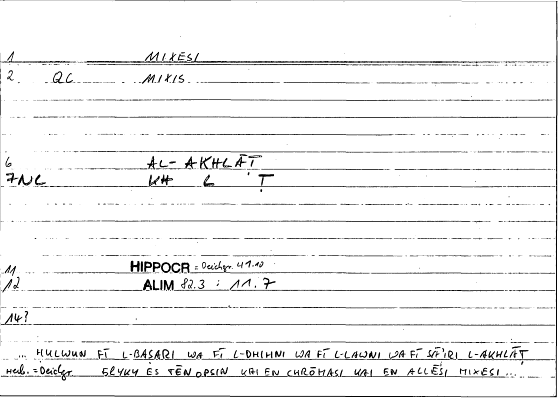 1 MIXESI
2 QC MIXIS
6 AL-AKHLĀṬ
7NC KH L Ṭ
11 HIPPOCR = Deichgr. 41.10
12 ALIM 82.3 : 11.7
14?
... HULWUN FĪ L-BASARI WA FĪ L-DHIHNI WA FĪ L-LAWNI WA FĪ L-AKHLĀṬ
= Deichgr. GLYKY ES TĒN OPSIN KAI EN CHRŌMASI KAI EN ALLĒSI MIXESI...